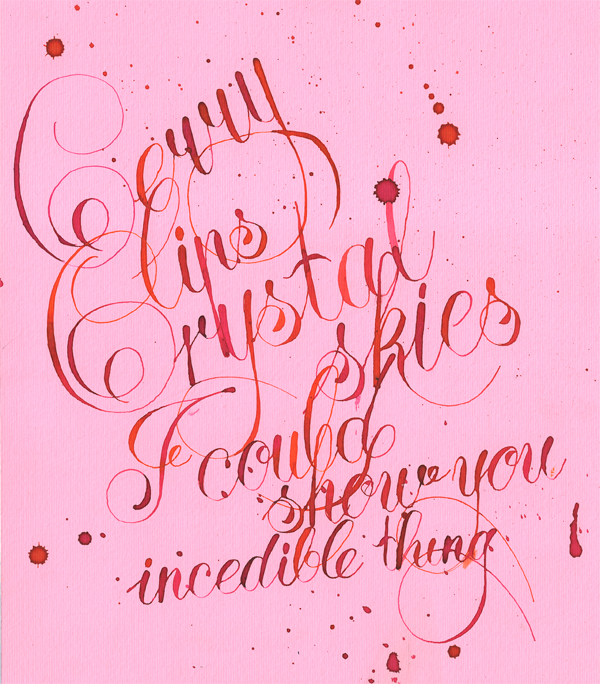 Cerry
lips
Crystal
skies
I could
show you
incedible thing